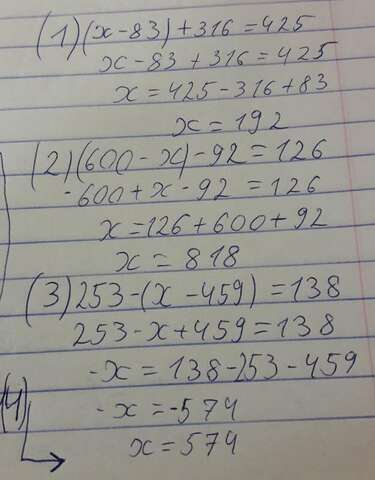 (1)(x-83)+316=425
x-83+316=425
x=425-316+83
x=192
(2)(600-x)-92=126
-600+x-92=126
x=126+600+92
x=818
(3)253-(x-459)=138
253-x+459=138
-x=138-253-459
(4) -x=-574
x=574